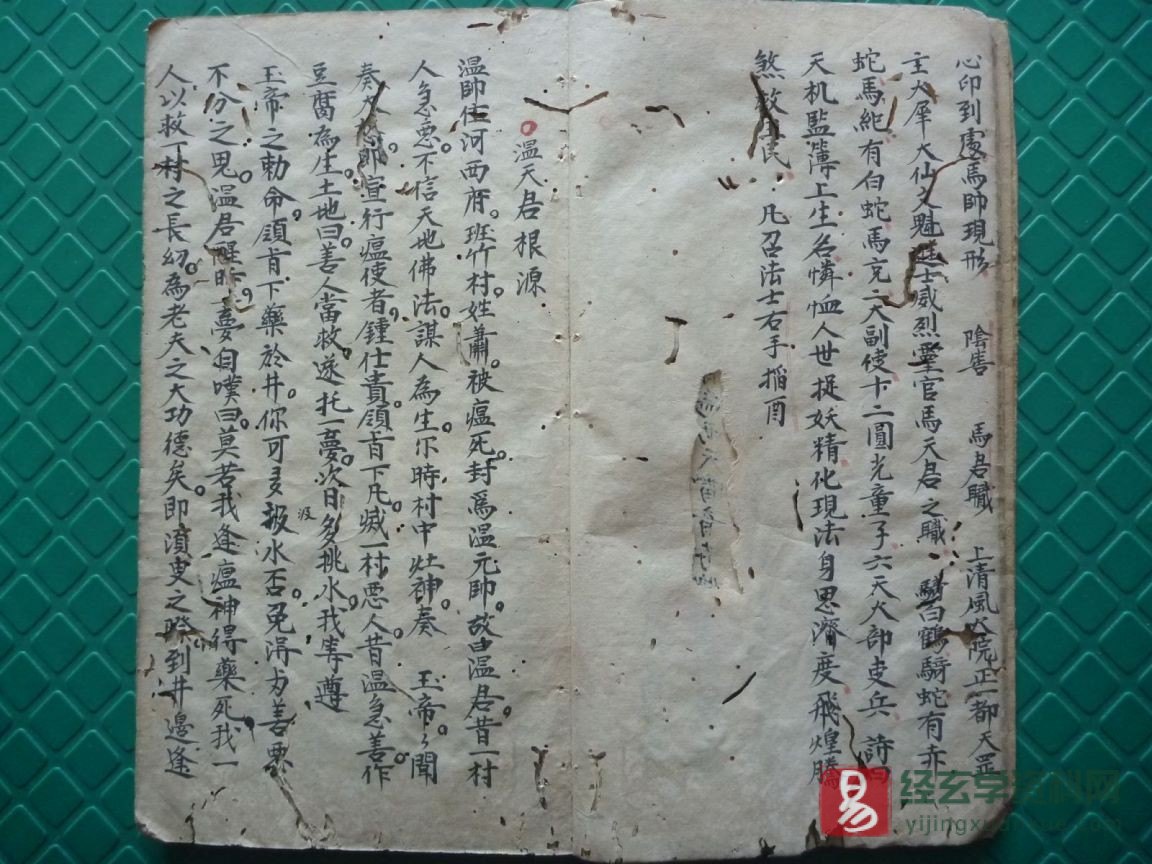 心印到處馬帥現形 陰告 馬君職 上清風火院正一都天罡
主大犀大仙文魁進士威烈靈官馬天君之職 騎白鶴騎蛇有赤
蛇馬紀有白蛇馬充二大副使十二圓光童子六天大部吏兵 詩曰
天机監簿上生名憐恤人世捉妖精化現法身思濟度飛煌騰
煞救生民 凡召法士右手掐酉
温天君根源
温帥住河西府。班竹村。姓蕭。被瘟死。封爲温元帥。故曰温君。昔一村
人急惡。不信天地佛法。謀人為生。尔時村中 灶神。奏 玉帝。聞
奏大怒即宣行瘟使者。鍾仕貴。領旨下凡。滅一村惡人。昔温急善。作
豆腐為生。土地曰。善人當救。遂托一夢。次日多挑水。我等遵
玉帝之勅命。領旨下藥於井。你可多报水否。免淂为善惡
汲
不分之鬼。温君醒昨。夢自嘆曰。莫若我逢瘟神得藥死我一
人以救一村之長幼。為老夫之大功德矣。即湏臾之際到井邊逢
经玄学资料网